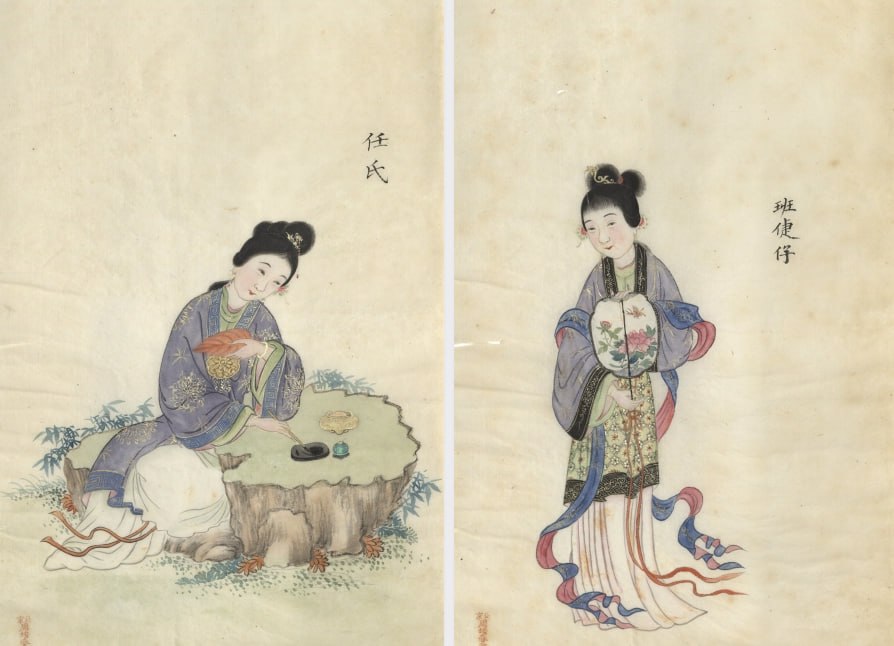 任氏
班倢伃